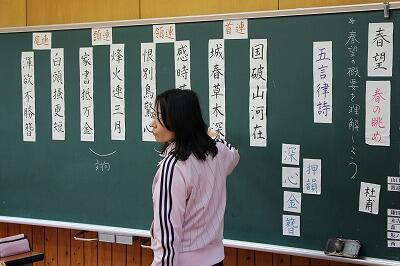 春望
春の眺め
杜甫
＊春望の概要を理解しよう
五言律詩
押韻
深
心
金
簪
首連
国破山河在
城春草木深
頷連
感時
恨別鳥驚心
頸連
烽火連三月
家書抵万金
対句
尾連
白頭掻更短
渾欲不勝簪